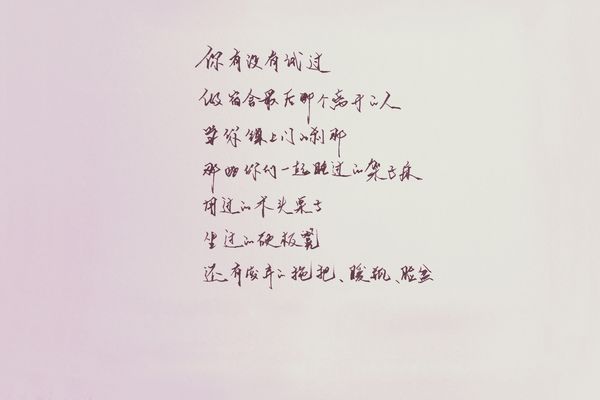 你有没有试过
做宿舍最后那个离开的人
等你锁上门的刹那
那些你们一起睡过的架子床
用过的木头桌子
坐过的硬板凳
还有成年的拖把、暖瓶、脸盆